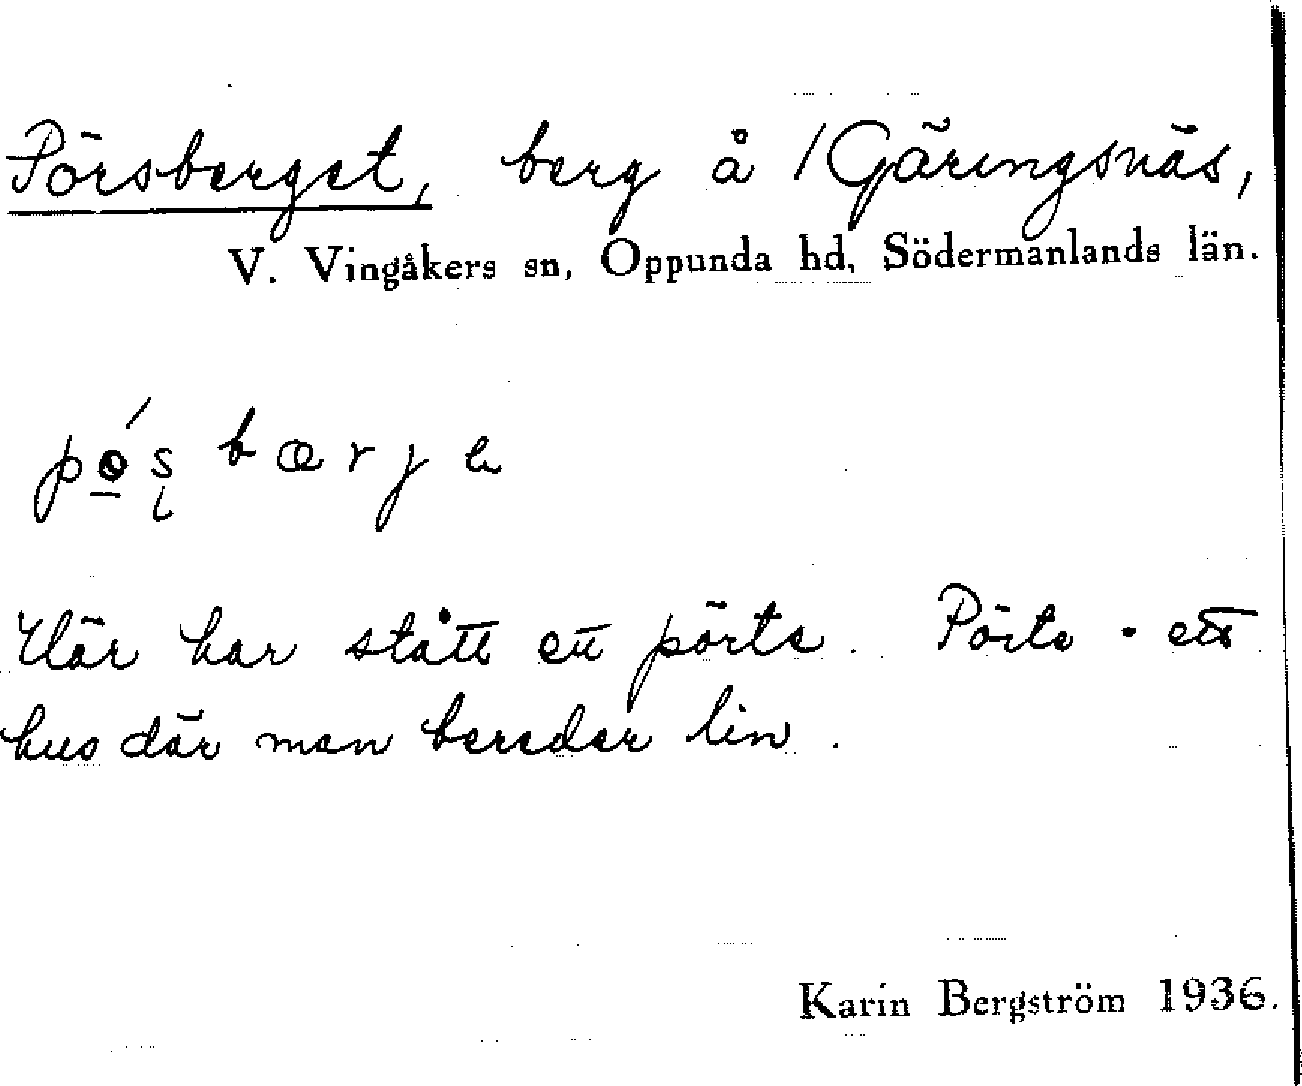 Pörsberget, berg å /Gäringsnäs,
V. Vingåkers sn, Oppunda hd, Södermanlands län.
Här har stått ett pörte. Pörte - ett
hus där man bereder lin.
Karin Bergström 1936.